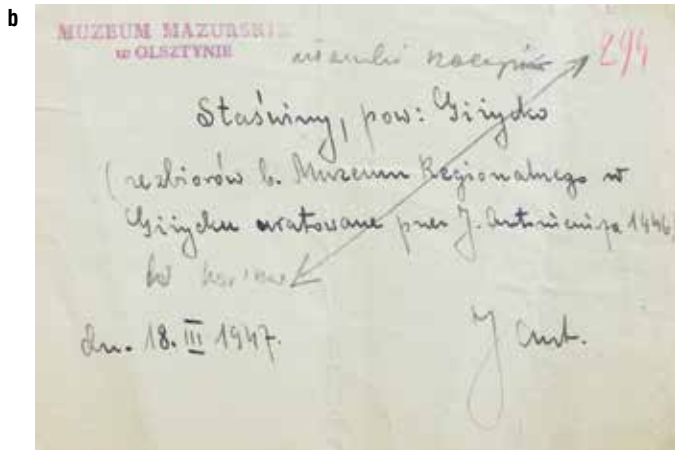 b
MUZEUM MAZURSKIE
w OLSZTYNIE
294
Staświny, pow: Giżycko
(ze zbiorów b. Muzeum Regionalnego w
Giżycku uratowane przez J. Antoniewicza 1946)
dn. 18. III 1947.
J Ant.